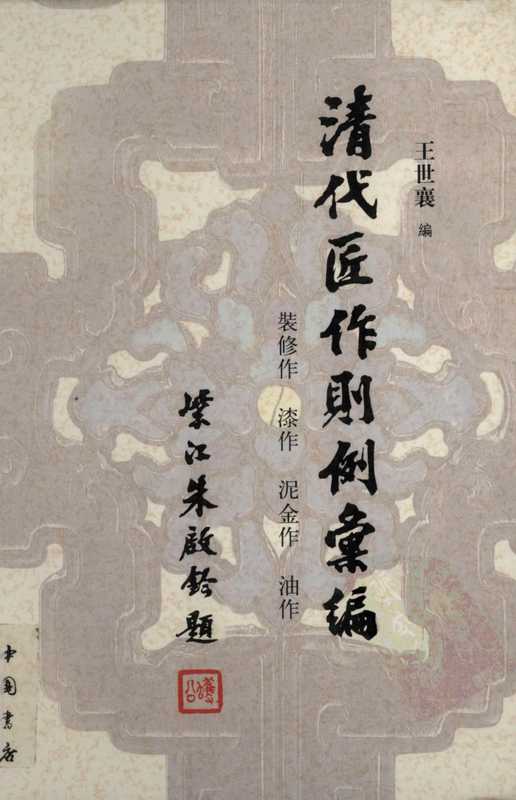 王世襄 編
清代匠作則例彙編
裝修作 漆作 泥金作 油作
紫江朱啟鈐題
中國書店